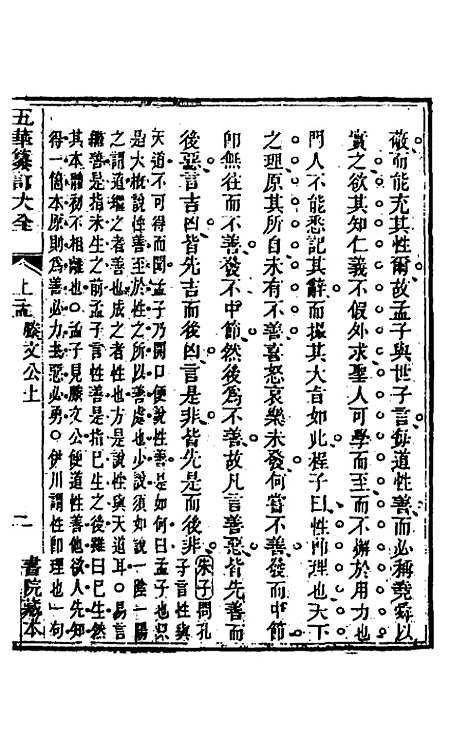 敬而能充其性爾故孟子與世子言每道性善而必稱堯舜以
實之欲其知仁義不假外求聖人可學而至而不懈於用力也
門人不能悉記其辭而撮其大旨如此程子曰性即理也天下
之理原其所自未有不善喜怒哀樂未發何嘗不善發而中節
即無往而不善發不中節然後為不善故凡言善惡皆先善而
後惡言吉凶皆先吉而後凶言是非皆先是而後非
朱子問孔
子言性與
天道不可得而聞孟子乃開口便說性善是如何曰孟子也只
是大槩說性善至於性之所以善處也少說須如說一陰一陽
之謂道繼之者善也成之者性也方是說性與天道耳○易言
繼善是指未生之前孟子言性善是指已生之後雖曰已生然
其本體初不相離也○孟子見滕文公便道性善他欲人先知
得一箇本原則為善必力去惡必勇○伊川謂性即理也一句
五華纂訂大全
上孟
滕文公上
二
書院藏本